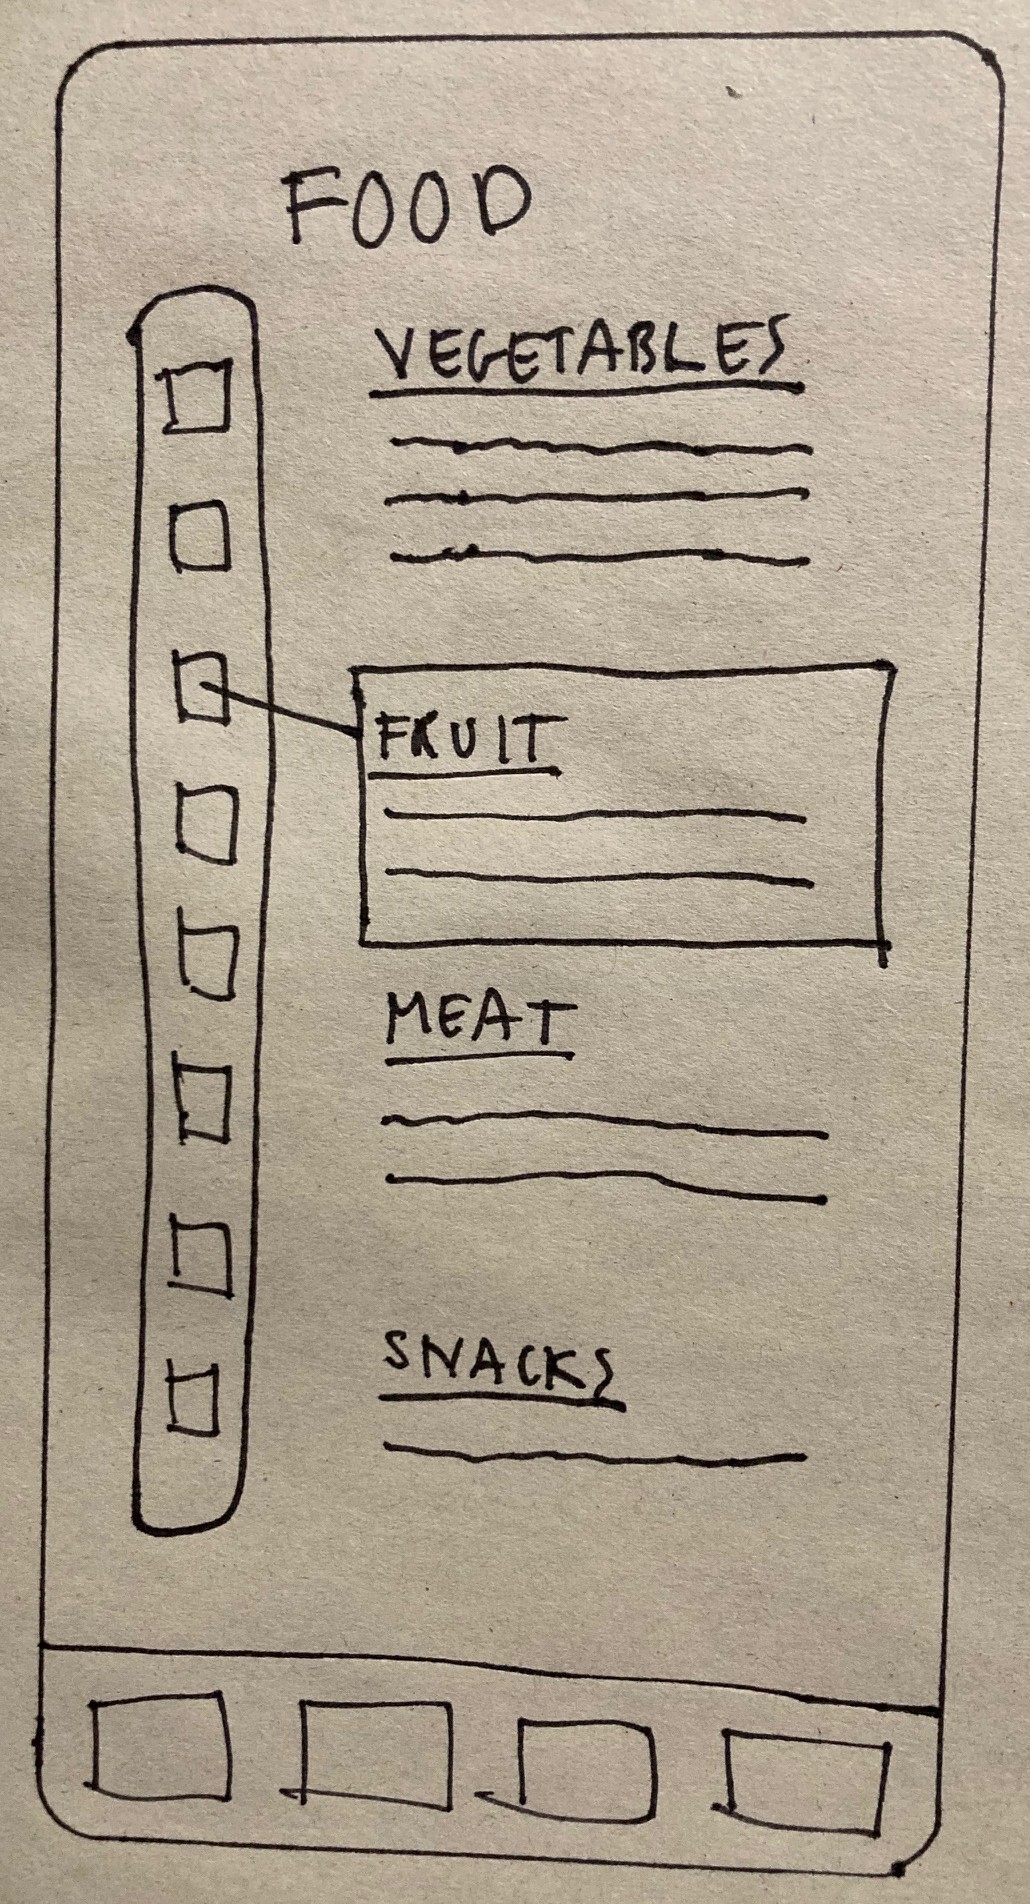 FOOD
VEGETABLES
FRUIT
MEAT
SNACKS